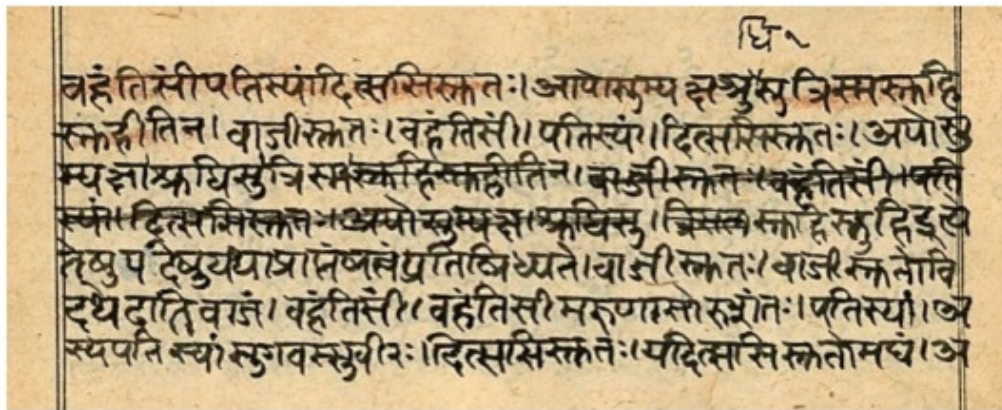 घि १
वहंतिसीं पतिस्यां दित्ससिस्तुतः। आपोसुम्यक्ष श्रुंसुत्रिस्मस्तुहि
स्तुहीतिन। वाजीस्तुतः। वहंतिसीं। पतिस्यं। दित्ससिस्तुतः। अपोसु
म्यक्ष। श्रुधिसुत्रिस्मस्तुहिस्तुहीतिन। वाजीस्तुतः। वहंतिसीं। पति
स्यां। दित्ससिस्तुतः। अपोसुम्यक्ष। श्रुधिसु। स्तुहिस्तुहिइत्ये
तेषुपदेषु प्रतिषिध्यते। वाजीस्तुतः। वाजीस्तुतोवि
दथेदातिवाजं। वहंतिसीं। वहंतिसीमरुणासोरुशंतः। पतिस्यां। अ
स्यपतिस्यांसुगवस्सुवीरः। दित्ससिस्तुतः। यदित्ससिस्तुतोमघं। अ